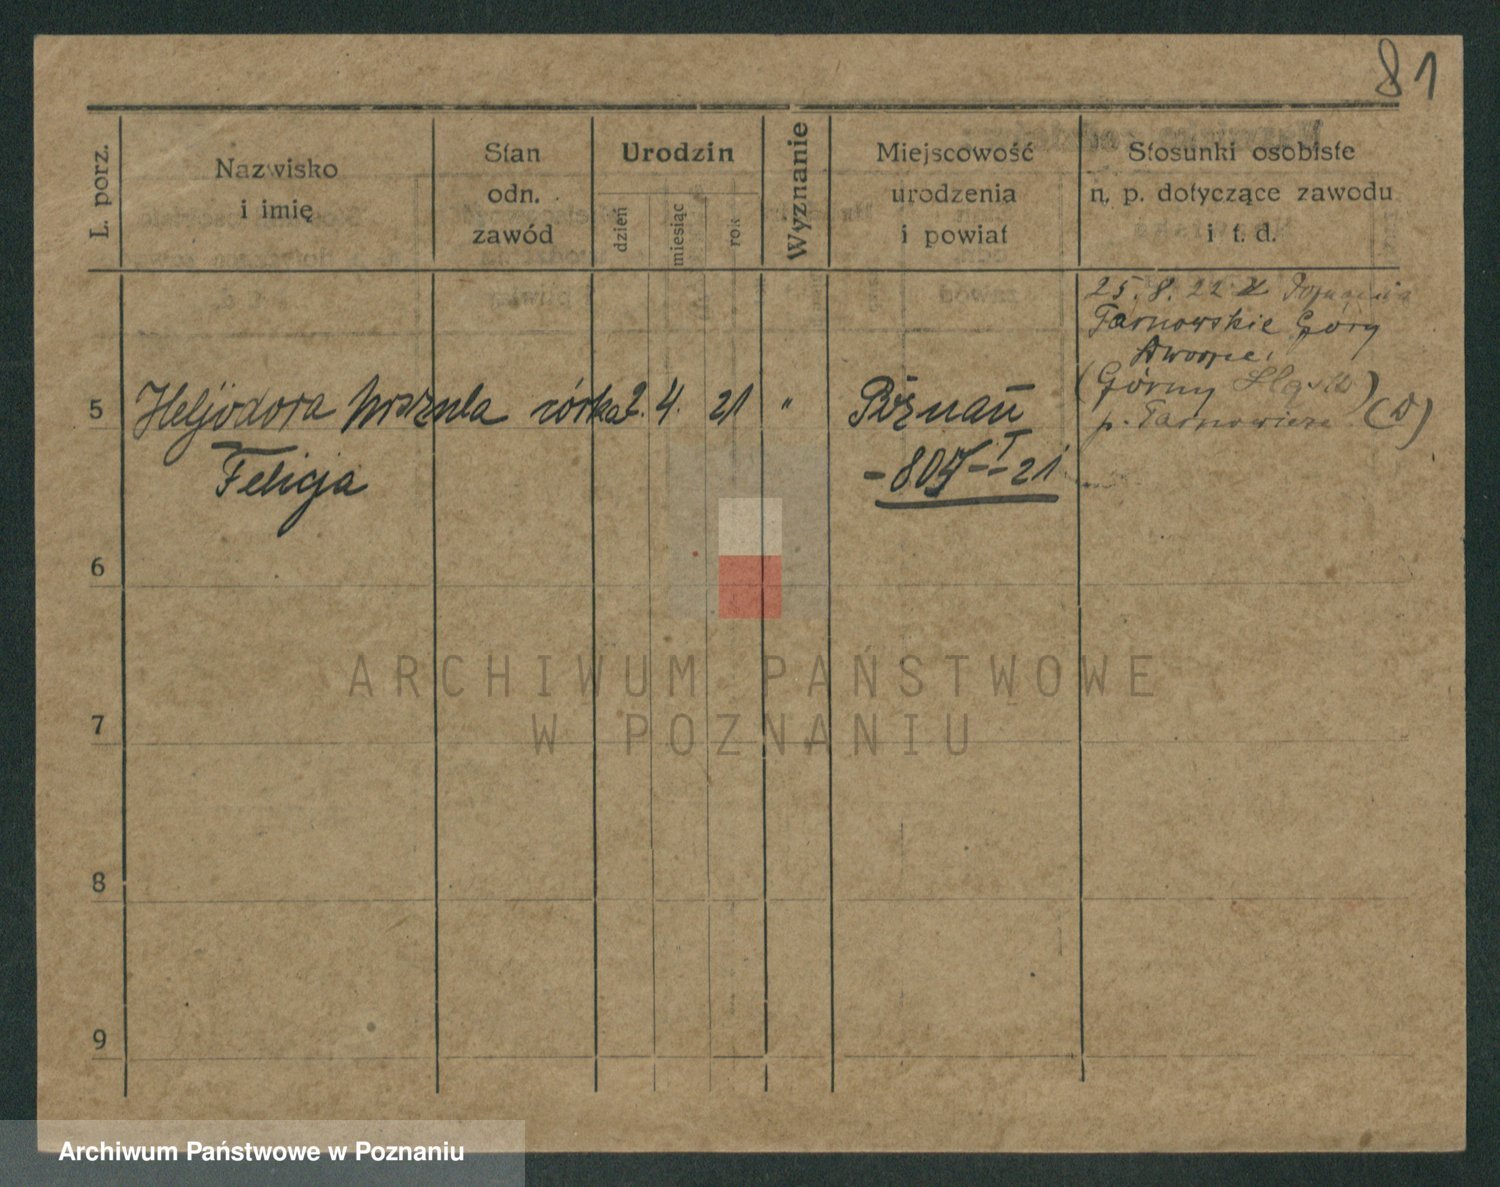 81
L. porz.
Nazwisko
i imię
Stan
odn.
zawód
Urodzin
dzień
miesiąc
rok
Wyznanie
Miejscowość
urodzenia
i powiat
Stosunki osobiste
n. p. dotyczące zawodu
i t. d.
25. 8. 22 z Poznania
Tarnowskie Góry
Dworzec
(Górny Śląsk)
p. Tarnowice (D)
5 Heljodora Urszula córka 2. 4. 21 " Poznań
Felicja
I
- 805 - 21
6
7
8
9
ARCHIWUM PAŃSTWOWE
W POZNANIU
Archiwum Państwowe w Poznaniu